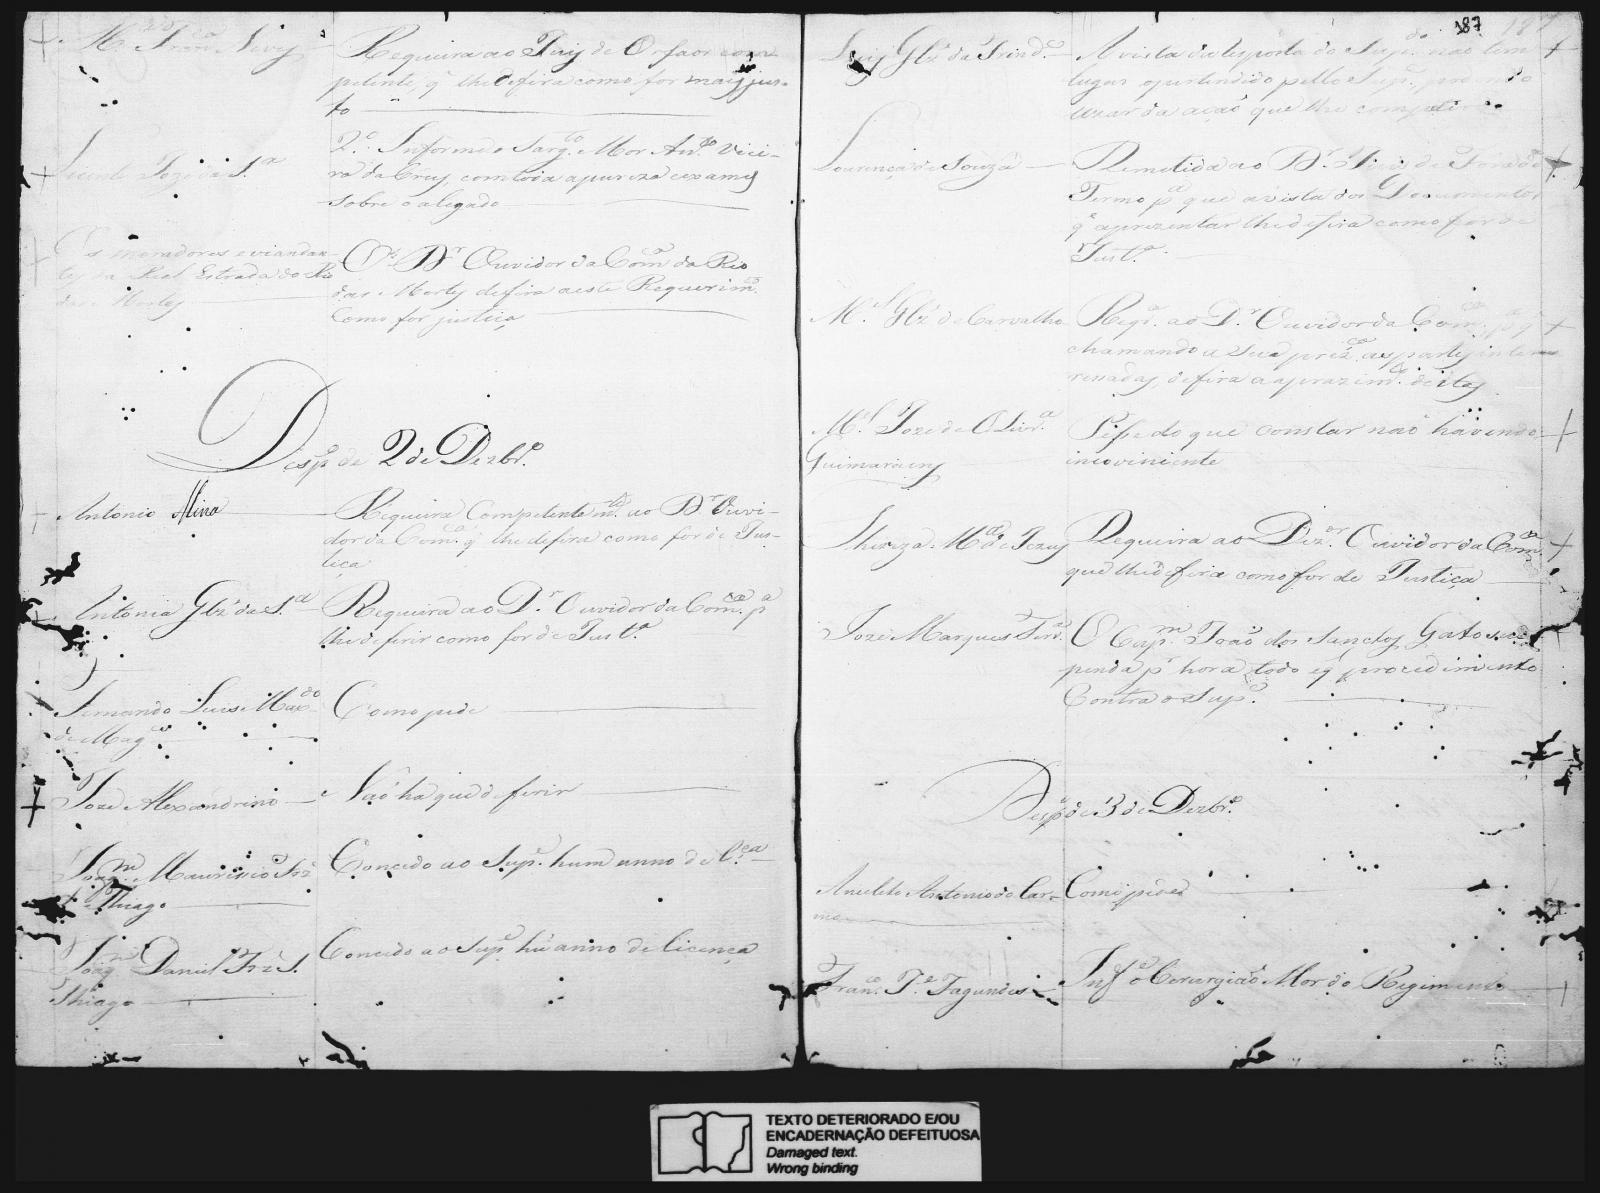 Neves
Requeira ao Juiz de Orfaos com
petente, q lhe defira como for mais jus-
to
Vicente Joze da S.ª
2.º Informe o Sarg.to Mor An.to Viei-
ra da Cruz, com toda a pureza e exames
sobre o alegado
Os moradores e viandan-
tes da Real Estrada do Rio
das Mortes
O S.r D.r Ouvidor da Com.ca do Rio
das Mortes defira a este Requerim.to
como for justiça
Desp.º de 2 de Dezbr.º
Antonio Mina
Requeira Competentem.te ao D.r Ouvi-
dor da Com.ca q lhe defira como for de Jus-
tiça
Antonia Glz' da S.ª
Requeira ao D.r Ouvidor da Com.ca p.ª
lhe deferir como for de Just.ª
Fernando Luis Maxdo
de Mag.es
Como pede
Joze Alexandrino
Naõ ha que deferir
Joaq.m Mauricio Frz
Thiago
Concedo ao Sup.e hum anno de l.ca
Joaq.m Daniel Frz S.
Thiago
Concedo ao Sup.e hũ anno de licença
187
Luis Glz' da Trind.e
A vista da resposta do Sup.do naõ tem
lugar o pertendido pello Sup.e podendo
uzar da açaõ que lhe competir
Lourença de Souza
Remetida ao D.r Juiz de Fora do
Termo p.ª que a vista dos Documentos
q aprezentar lhe defira como for de
Just.ª
M.el Glz' de Carvalho
Req.ra ao D.r Ouvidor da Com.ca p.ª q
chamando a sua prez.ca as partes inte
ressadas, defira a aprazim.to dellas
M.el Joze de Olivr.ª
Guimaraens
Passe do que constar naõ havendo
inconviniente
Thereza M.ª de Jezus
Requeira ao Dez.or Ouvidor da Com.ca
que lhe defira como for de Justiça
Joze Marques Ferr.ª
O Cap.m Joaõ dos Sanctos Gato sus
penda p.r hora todo e q.l procedimento
Contra o Sup.e
Desp.º de 3 de Dezbr.º
Anacleto Antonio do Car-
mo
Como pede
Fran.co J.e Fagundes
Inf.e o Cerurgiaõ Mor do Regimento
TEXTO DETERIORADO E/OU
ENCADERNAÇÃO DEFEITUOSA
Damaged text.
Wrong binding